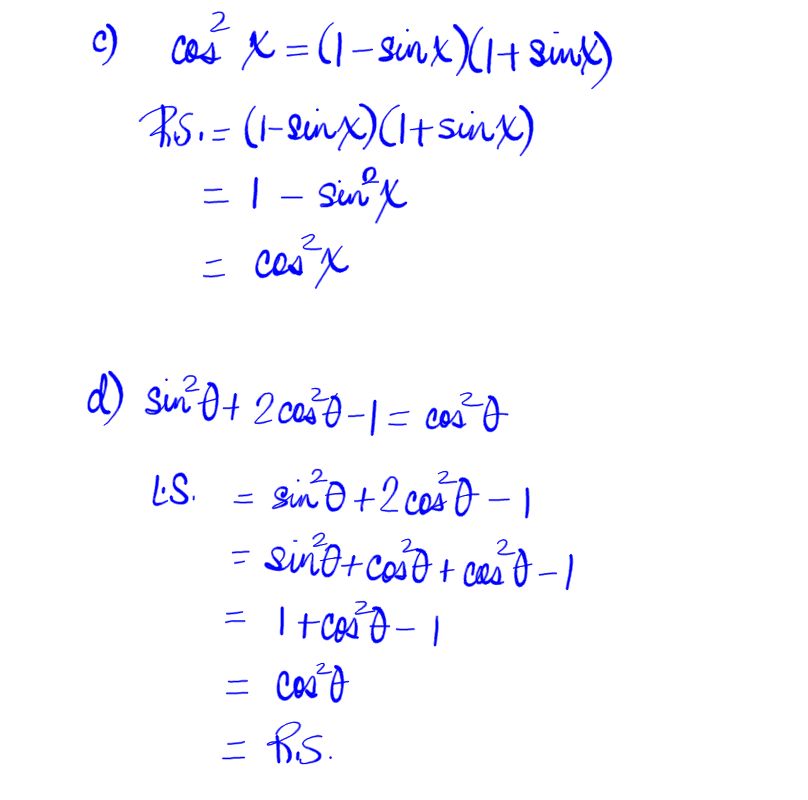 c) cos² x = (1 - sinx)(1 + sinx)
R.S. = (1 - sinx)(1 + sinx)
= 1 - sin²x
= cos²x
d) sin²θ + 2cos²θ - 1 = cos²θ
L.S. = sin²θ + 2cos²θ - 1
= sin²θ + cos²θ + cos²θ - 1
= 1 + cos²θ - 1
= cos²θ
= R.S.